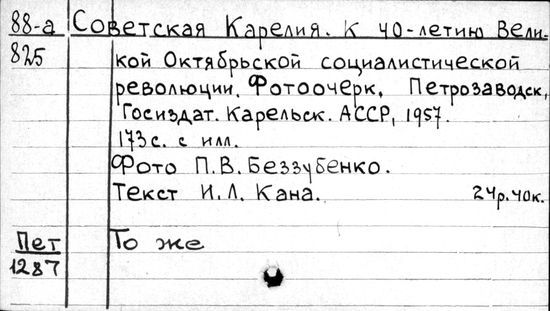 88-а Советская Карелия. К 40-летию Вели-
825 кой Октябрьской социалистической
революции. Фотоочерк. Петрозаводск,
Госиздат. Карельск. АССР, 1957.
173 с. с илл.
Фото П.В. Беззубенко.
Текст И.Л. Кана. 24р.40к.
Пет То же
1287